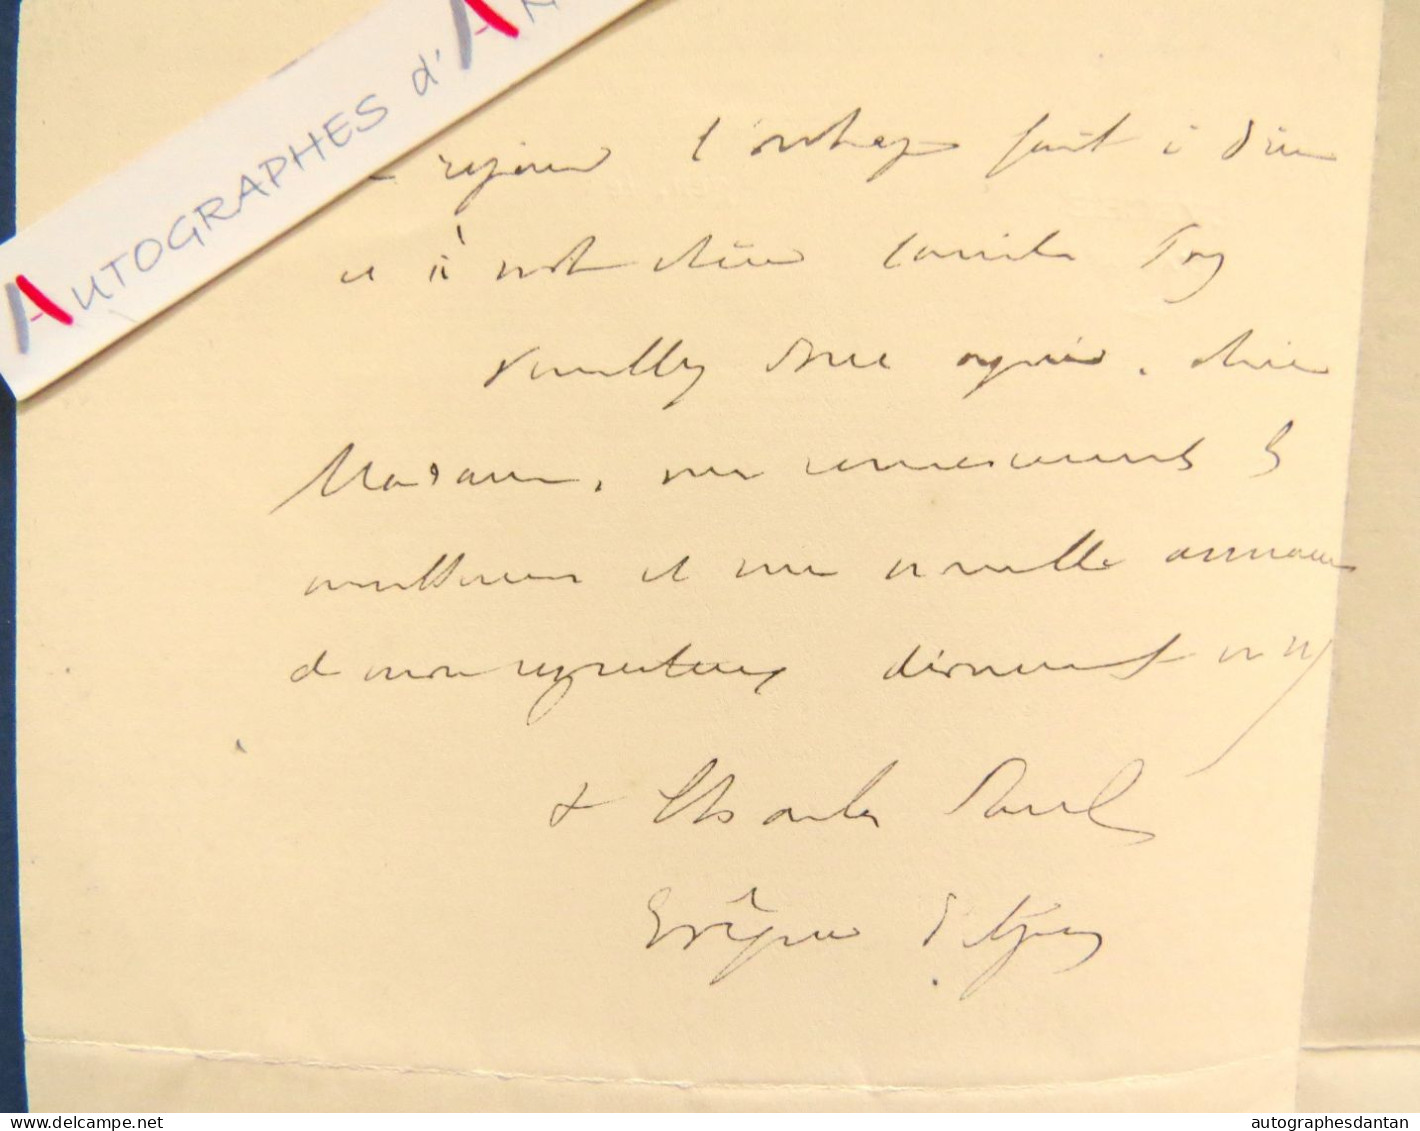 AUTOGRAPHES d'A
l'outrage fait à Dieu
et à notre chère
Veuillez donc agréer, chère
Madame, mes remerciements les
meilleurs et une nouvelle assurance
de mon respectueux dévouement
+ Charles Paul
Evêque d'
delcampe.net
autographesdantan